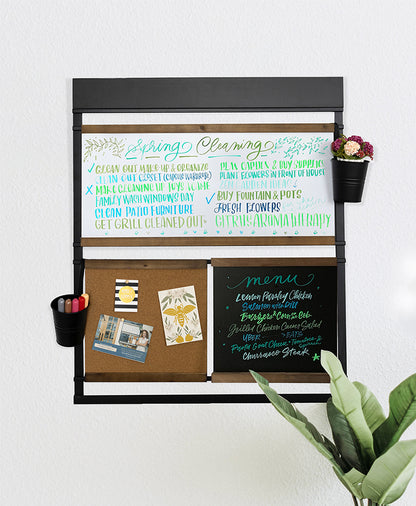 Spring Cleaning
✓ CLEAN OUT MAKE UP & ORGANIZE
CLEAN OUT CLOSET
✗ MAKE CLEANING UP TOYS A GAME
FAMILY WASH WINDOWS DAY
CLEAN PATIO FURNITURE
GET GRILL CLEANED OUT
PLAN GARDEN & BUY SUPPLIES
PLANT FLOWERS IN FRONT OF HOUSE
✓ BUY FOUNTAIN & POTS
FRESH FLOWERS
CITRUS AROMATHERAPY
menu
Lemon Parsley Chicken
Salmon with Dill
Burgers & Corn on the Cob
Grilled Chicken Caesar Salad
UBER EATS
Pasta Goat Cheese
Churrasco Steak